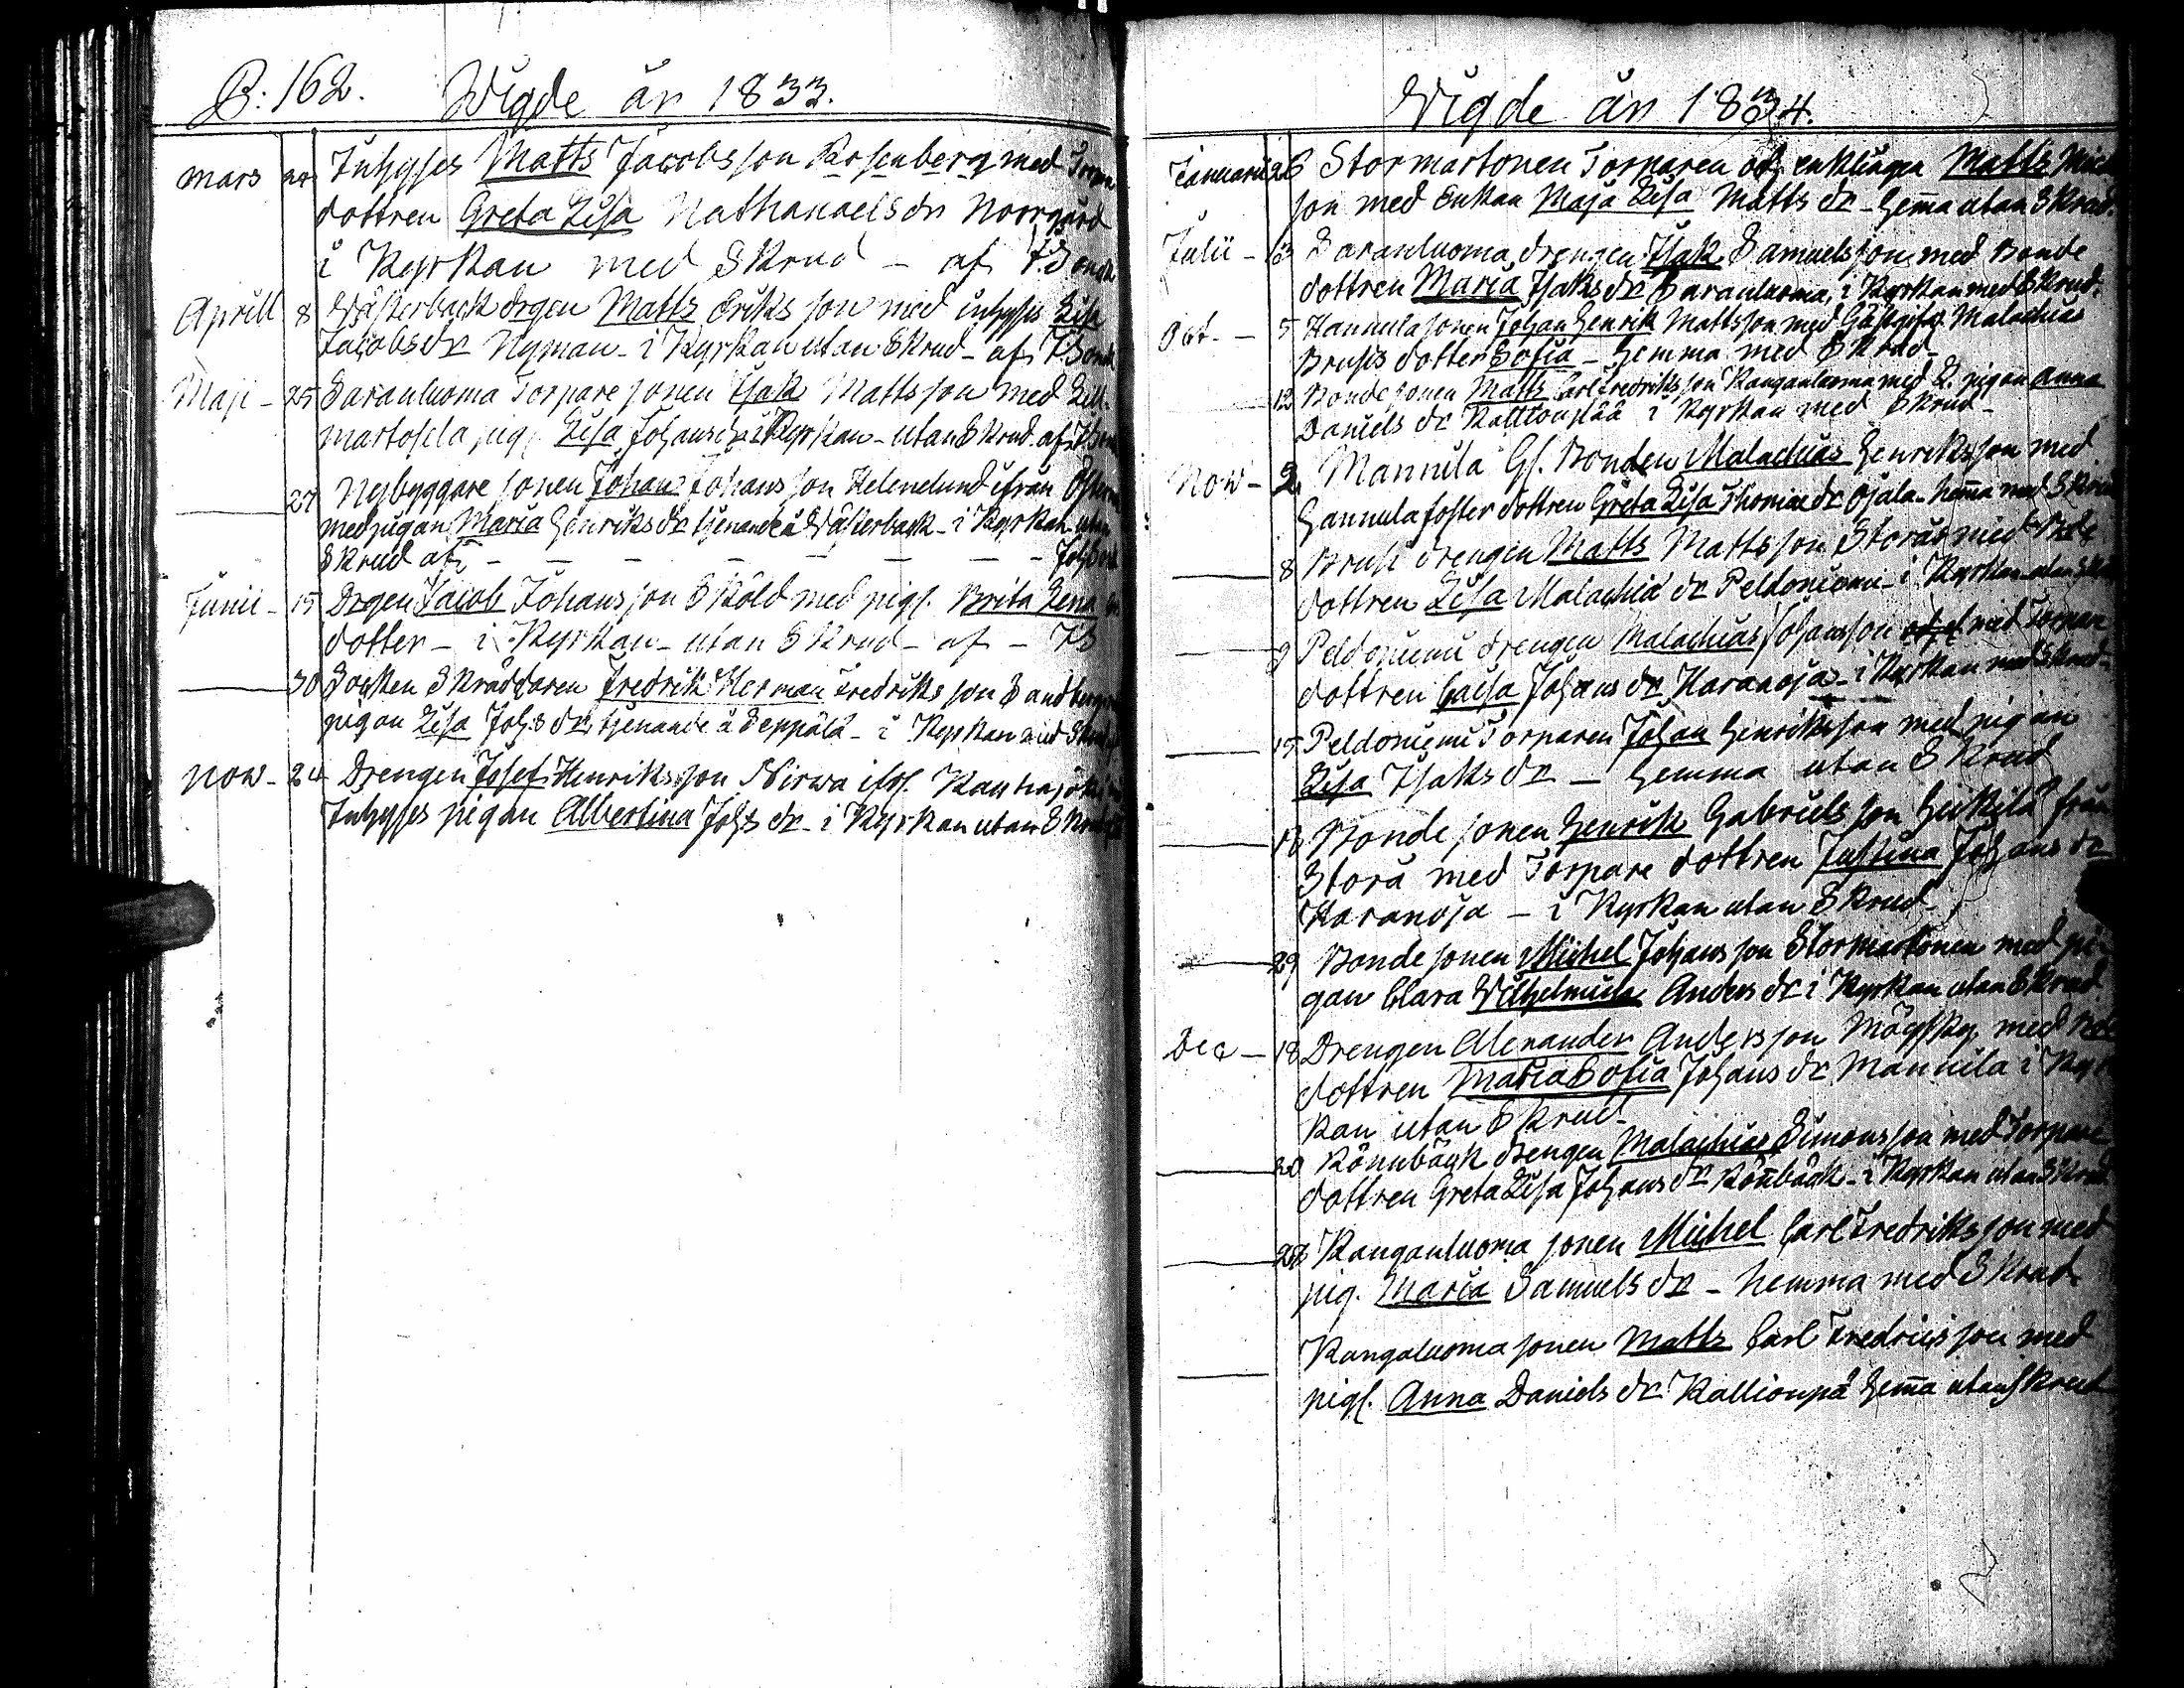 B: 162. Wigde år 1833.
mars 24 Inhyses Matts Jacobsson Rosenberg med
dottren Greta Lisa Nathanaels dr Norrgård
i Kyrkan med Skrud - af
Aprill 8 Wästerback drgen Matts Eriks son med inhyses Lisa
Jacobs dr Nyman - i Kyrkan utan Skrud - af
Maji - 25 Saranluoma Torpare sonen Isak Mattsson med
martosela pig. Lisa Johans dr i Kyrkan - utan Skrud af
27 Nybyggare sonen Johan Johansson Helenelund ifrån
med pigan Maria Henriks dr tjenande å Wästerback - i Kyrkan utan
Skrud af - - - - - - -
Junii - 15 Drgen Jacob Johansson Sköld med pigs. Brita Lena
dotter - i Kyrkan - utan Skrud - af -
30 Socken Skräddaren Fredrik Herman Fredriksson Sandberg
pigan Lisa Johs dr tjenande å Seppälä - i Kyrkan med Skrud
Now - 24 Drengen Josef Henriksson Nirwa ifr. Kauhajoki
Inhyses pigan Albertina Johs dr - i Kyrkan utan Skrud
Wigde år 1834.
Januarii 26 Stormartonen Torparen och enklingen Matts
son med Enkan Maja Lisa Matts dr - hema utan Skrud.
Julii - 13 Saranluoma drengen Isak Samuelsson med Bonde
dottren Maria Isaks dr Saranluoma, i Kyrkan med Skrud.
Oct. - 5 Hannula sonen Johan Henrik Mattsson med Gästgifv. Malachias
Brusis dotter Sofia - hemma med Skrud -
12 Bonde sonen Matts Carl Fredriksson Kanganluoma med pigan Anna
Daniels dr i Kyrkan med Skrud -
Now - 2 Mannila Gl. Bonden Malachias Henriksson med
Hannula foster dottren Greta Lisa Thomae dr Ojala - hema med Skrud
8 Brusi drengen Matts Mattsson Storås med
dottren Lisa Malachiæ dr Peldoniemi - i Kyrkan utan
9 Peldoniemi drengen Malachias Johansson med Torpare
dottren Caisa Johans dr Haranoja - i Kyrkan med Skrud -
15 Peldoniemi Torparen Johan Henriksson med pigan
Lisa Isaks dr - hemma utan Skrud
16 Bonde sonen Henrik Gabriels son Heikilä från
Storå med Torpare dottren Justina Johans dr
Haranoja - i Kyrkan utan Skrud -
29 Bonde sonen Michel Johansson Stormartonen med pi-
gan Clara Wilhelmina Anders dr i Kyrkan utan Skrud
Dec - 18 Drengen Alexander Andersson med
dottren Maria Sofia Johans dr Mannila i Kyr
kan utan Skrud -
20 Rönnbäck drengen Malachias Simonsson med Torpare
dottren Greta Lisa Johans dr Rönbäck - i Kyrkan utan Skrud
28 Kanganluoma sonen Michel Carl Fredriksson med
pig. Maria Samuels dr - hemma med Skrud
Kangaluoma sonen Matts Carl Fredricsson med
pigs. Anna Daniels dr Kallionpä hema utan skrud